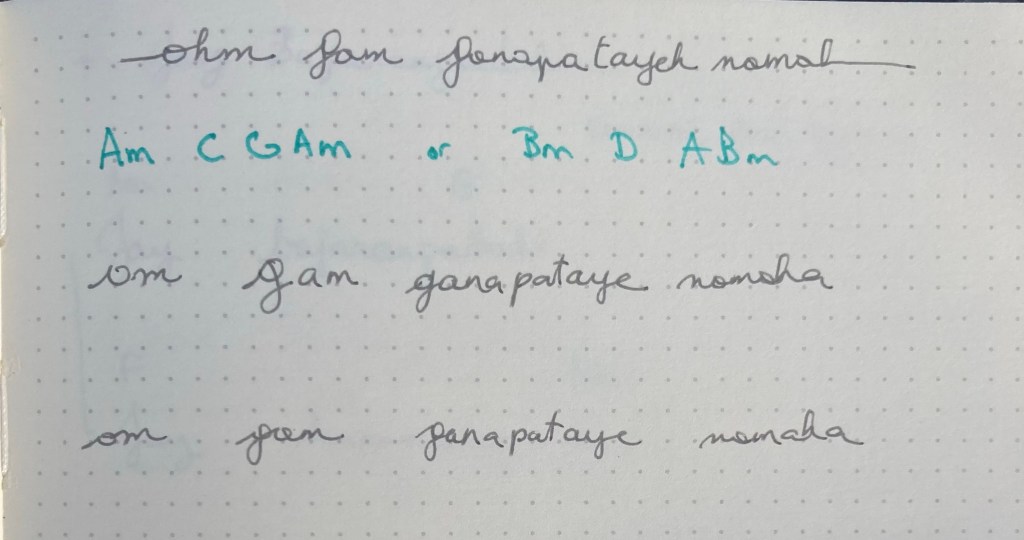 ohm gam ganapatayeh namah
Am C G Am or Bm D A Bm
om gam ganapataye namaha
om gam ganapataye namaha